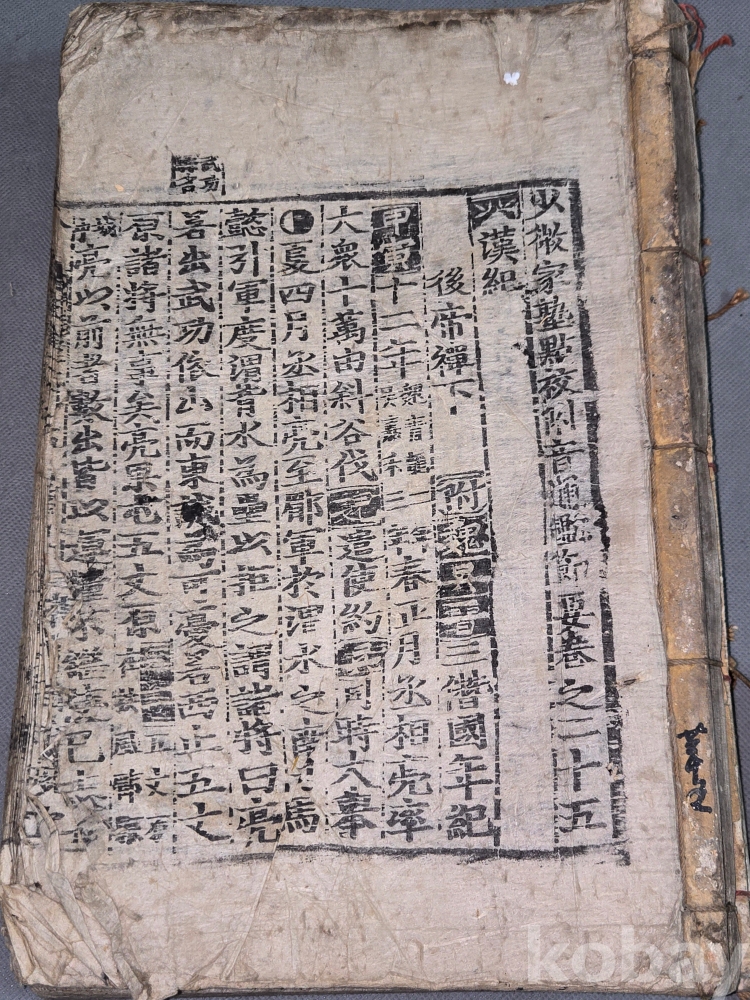 少微家塾點校附音通鑑節要卷之二十五
漢紀
後帝禪下 附魏吳晉三僭國年紀
甲寅十二年 魏青龍二年 吳嘉禾三年 春正月丞相亮率
大衆十萬由斜谷伐魏遣使約吳同時大擧
夏四月丞相亮至郿軍於渭水之南司馬
懿引軍度渭背水爲壘以拒之謂諸將曰亮
若出武功依山而東誠爲可憂若西止五丈
原諸將無事矣亮果屯五丈原
亮以前者數出皆以運糧不繼使己志
武功
縣名
kobay